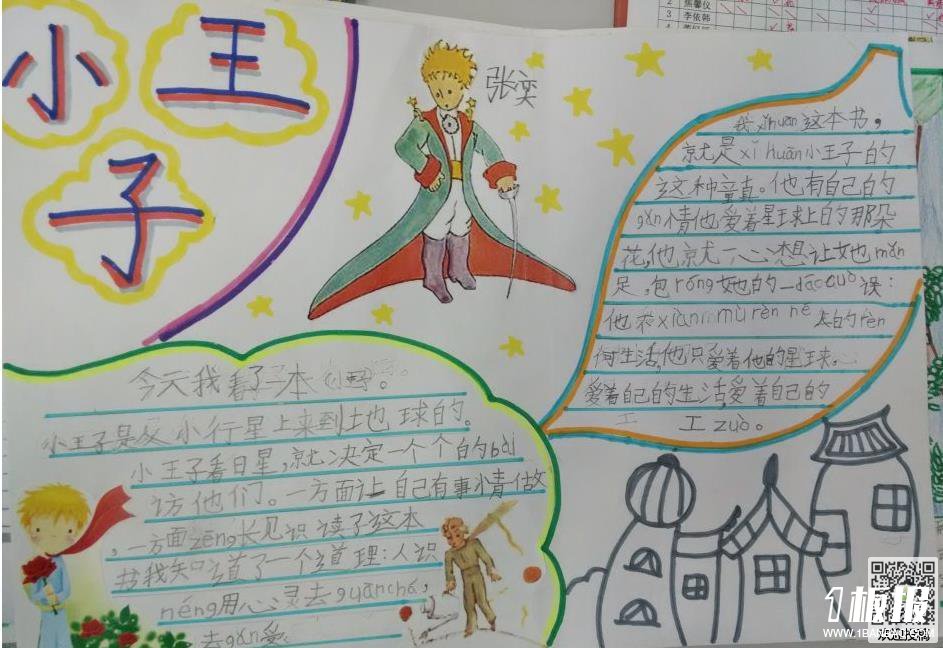 小
王
子
张奕
我xǐhuan这本书,
就是xǐ huān小王子的
这种童真。他有自己的
gǎn情他爱着星球上的那朵
花,他就一心想让她mǎn
足,包róng她的一dāocuò误:
他衣xiànmùrèn né 的rèn
何生活,他只爱着他的星球.
爱着自己的生活,爱着自己的
工zuò。
今天我看了一本《小王子》。
小王子是从小行星上来到地球的。
小王子看日星,就决定一个个的bài
访他们。一方面让自己有事情做
,一方面zēng长见识 读了这本
书我知道了一个道理:人识
néng用心灵去guānchá,
去gǎn爱
李依韩
1板报
WWW.1BANBAO.COM
欢迎投稿